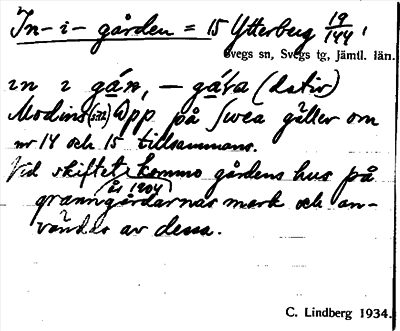 In-i-gården = 15 Ytterberg 19/144 '
Svegs sn, Svegs tg, Jämtl. län.
ın ı gán, – gáṛa (dativ)
på Svea gäller om
nr 14 och 15 tillsammans.
Vid skiftet år 1904 kommo gårdens hus på
granngårdarnas mark och an-
vändes av dessa.
C. Lindberg 1934.